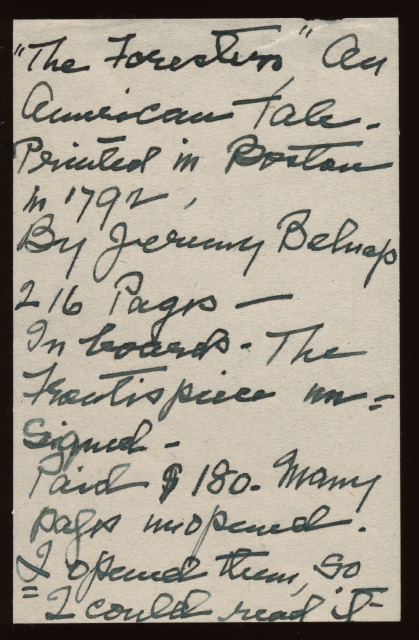 "The Foresters" An
American Tale -
Printed in Boston
in 1792,
By Jeremy Belnap
216 Pages —
In boards - The
Frontispiece un=
signed -
Paid $180. Many
pages unopened.
I opened them, so
= I could read it -